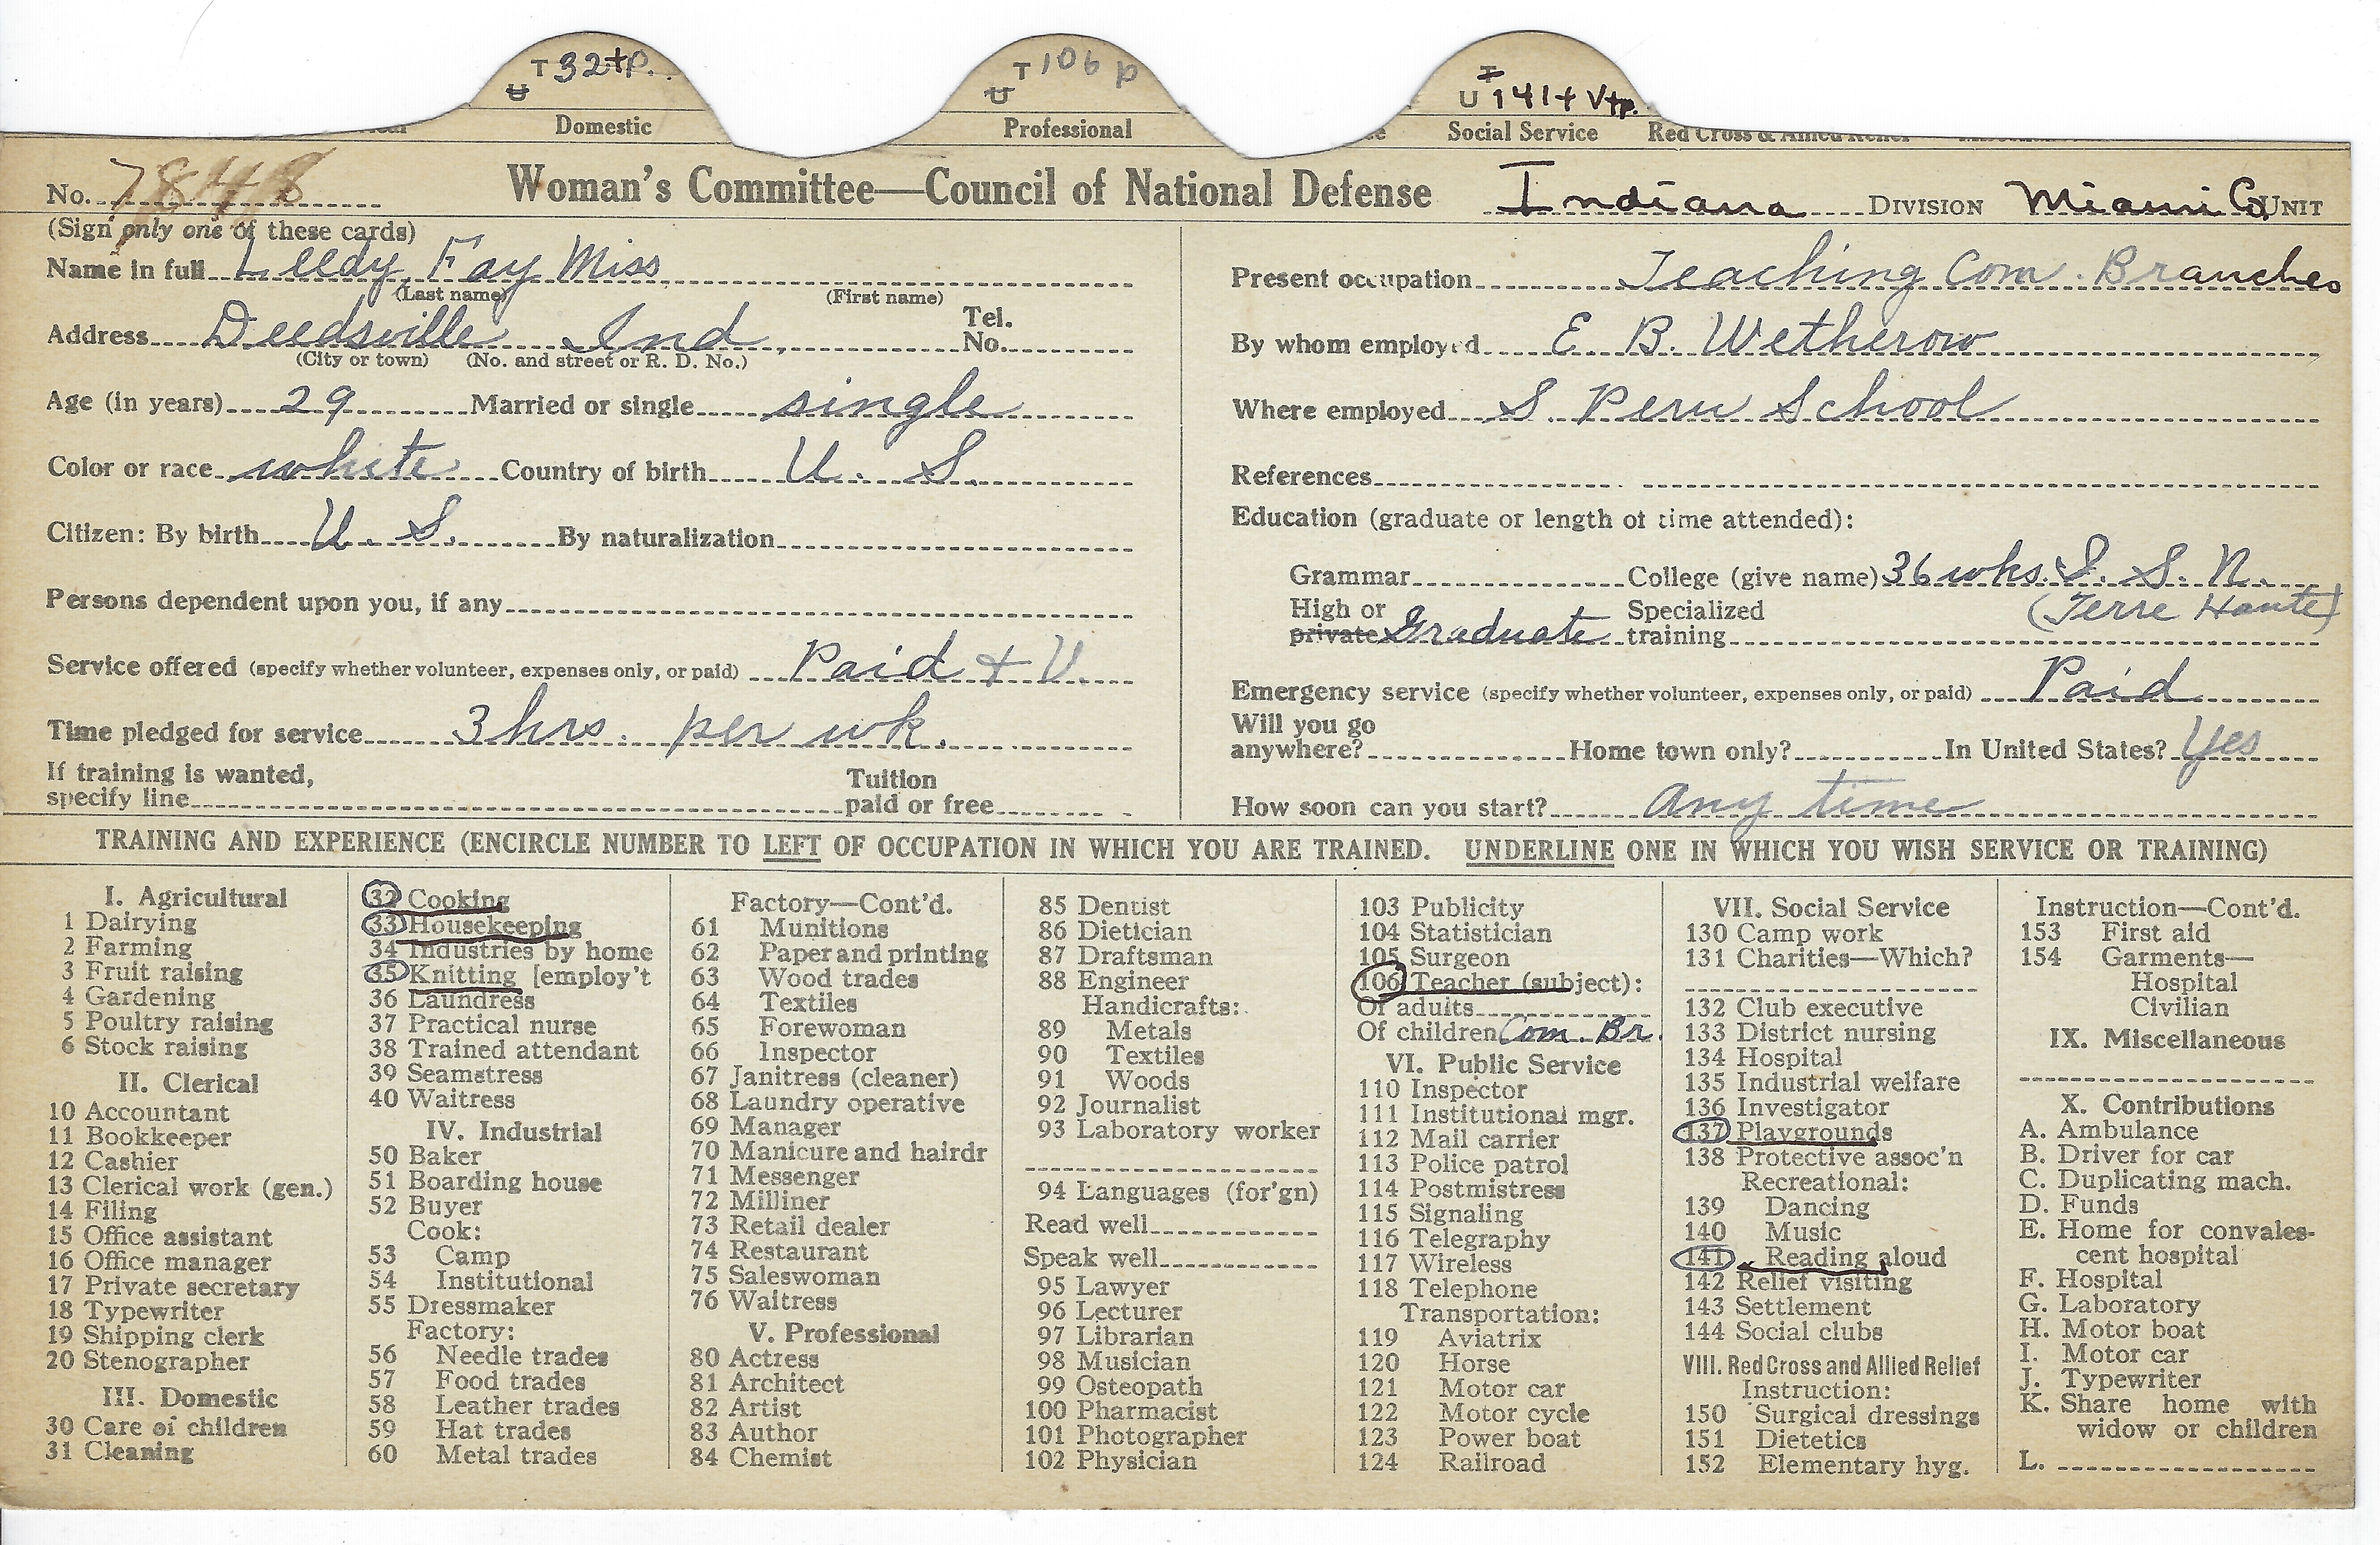 T 32+p.
U
Domestic
T 106 p
U
Professional
T
U 141+ V+p.
Social Service
Red Cross & Allied Relief
No. 7848
Woman's Committee—Council of National Defense
Indiana DIVISION Miami Co. UNIT
(Sign only one of these cards)
Name in full Leedy, Fay Miss
(Last name) (First name)
Address Deedsville Ind, Tel. No.
(City or town) (No. and street or R. D. No.)
Age (in years) 29 Married or single single
Color or race white Country of birth U. S.
Citizen: By birth U. S. By naturalization
Persons dependent upon you, if any
Service offered (specify whether volunteer, expenses only, or paid) Paid + V.
Time pledged for service 3 hrs. per wk.
If training is wanted,
specify line
Tuition
paid or free
Present occupation Teaching Com. Branches
By whom employed E. B. Wetherow
Where employed S. Peru School
References
Education (graduate or length of time attended):
Grammar College (give name) 36 wks. I. S. N.
(Terre Haute)
High or
private Graduate
Specialized
training
Emergency service (specify whether volunteer, expenses only, or paid) Paid
Will you go
anywhere? Home town only? In United States? Yes
How soon can you start? Any time
TRAINING AND EXPERIENCE (ENCIRCLE NUMBER TO LEFT OF OCCUPATION IN WHICH YOU ARE TRAINED. UNDERLINE ONE IN WHICH YOU WISH SERVICE OR TRAINING)
I. Agricultural
1 Dairying
2 Farming
3 Fruit raising
4 Gardening
5 Poultry raising
6 Stock raising
II. Clerical
10 Accountant
11 Bookkeeper
12 Cashier
13 Clerical work (gen.)
14 Filing
15 Office assistant
16 Office manager
17 Private secretary
18 Typewriter
19 Shipping clerk
20 Stenographer
III. Domestic
30 Care of children
31 Cleaning
32 Cooking
33 Housekeeping
34 Industries by home
35 Knitting [employ't
36 Laundress
37 Practical nurse
38 Trained attendant
39 Seamstress
40 Waitress
IV. Industrial
50 Baker
51 Boarding house
52 Buyer
Cook:
53 Camp
54 Institutional
55 Dressmaker
Factory:
56 Needle trades
57 Food trades
58 Leather trades
59 Hat trades
60 Metal trades
Factory—Cont'd.
61 Munitions
62 Paper and printing
63 Wood trades
64 Textiles
65 Forewoman
66 Inspector
67 Janitress (cleaner)
68 Laundry operative
69 Manager
70 Manicure and hairdr
71 Messenger
72 Milliner
73 Retail dealer
74 Restaurant
75 Saleswoman
76 Waitress
V. Professional
80 Actress
81 Architect
82 Artist
83 Author
84 Chemist
85 Dentist
86 Dietician
87 Draftsman
88 Engineer
Handicrafts:
89 Metals
90 Textiles
91 Woods
92 Journalist
93 Laboratory worker
94 Languages (for'gn)
Read well
Speak well
95 Lawyer
96 Lecturer
97 Librarian
98 Musician
99 Osteopath
100 Pharmacist
101 Photographer
102 Physician
103 Publicity
104 Statistician
105 Surgeon
106 Teacher (subject):
Of adults
Of children Com. Br.
VI. Public Service
110 Inspector
111 Institutional mgr.
112 Mail carrier
113 Police patrol
114 Postmistress
115 Signaling
116 Telegraphy
117 Wireless
118 Telephone
Transportation:
119 Aviatrix
120 Horse
121 Motor car
122 Motor cycle
123 Power boat
124 Railroad
VII. Social Service
130 Camp work
131 Charities—Which?
132 Club executive
133 District nursing
134 Hospital
135 Industrial welfare
136 Investigator
137 Playgrounds
138 Protective assoc'n
Recreational:
139 Dancing
140 Music
141 Reading aloud
142 Relief visiting
143 Settlement
144 Social clubs
VIII. Red Cross and Allied Relief
Instruction:
150 Surgical dressings
151 Dietetics
152 Elementary hyg.
Instruction—Cont'd.
153 First aid
154 Garments—
Hospital
Civilian
IX. Miscellaneous
X. Contributions
A. Ambulance
B. Driver for car
C. Duplicating mach.
D. Funds
E. Home for convales-
cent hospital
F. Hospital
G. Laboratory
H. Motor boat
I. Motor car
J. Typewriter
K. Share home with
widow or children
L.